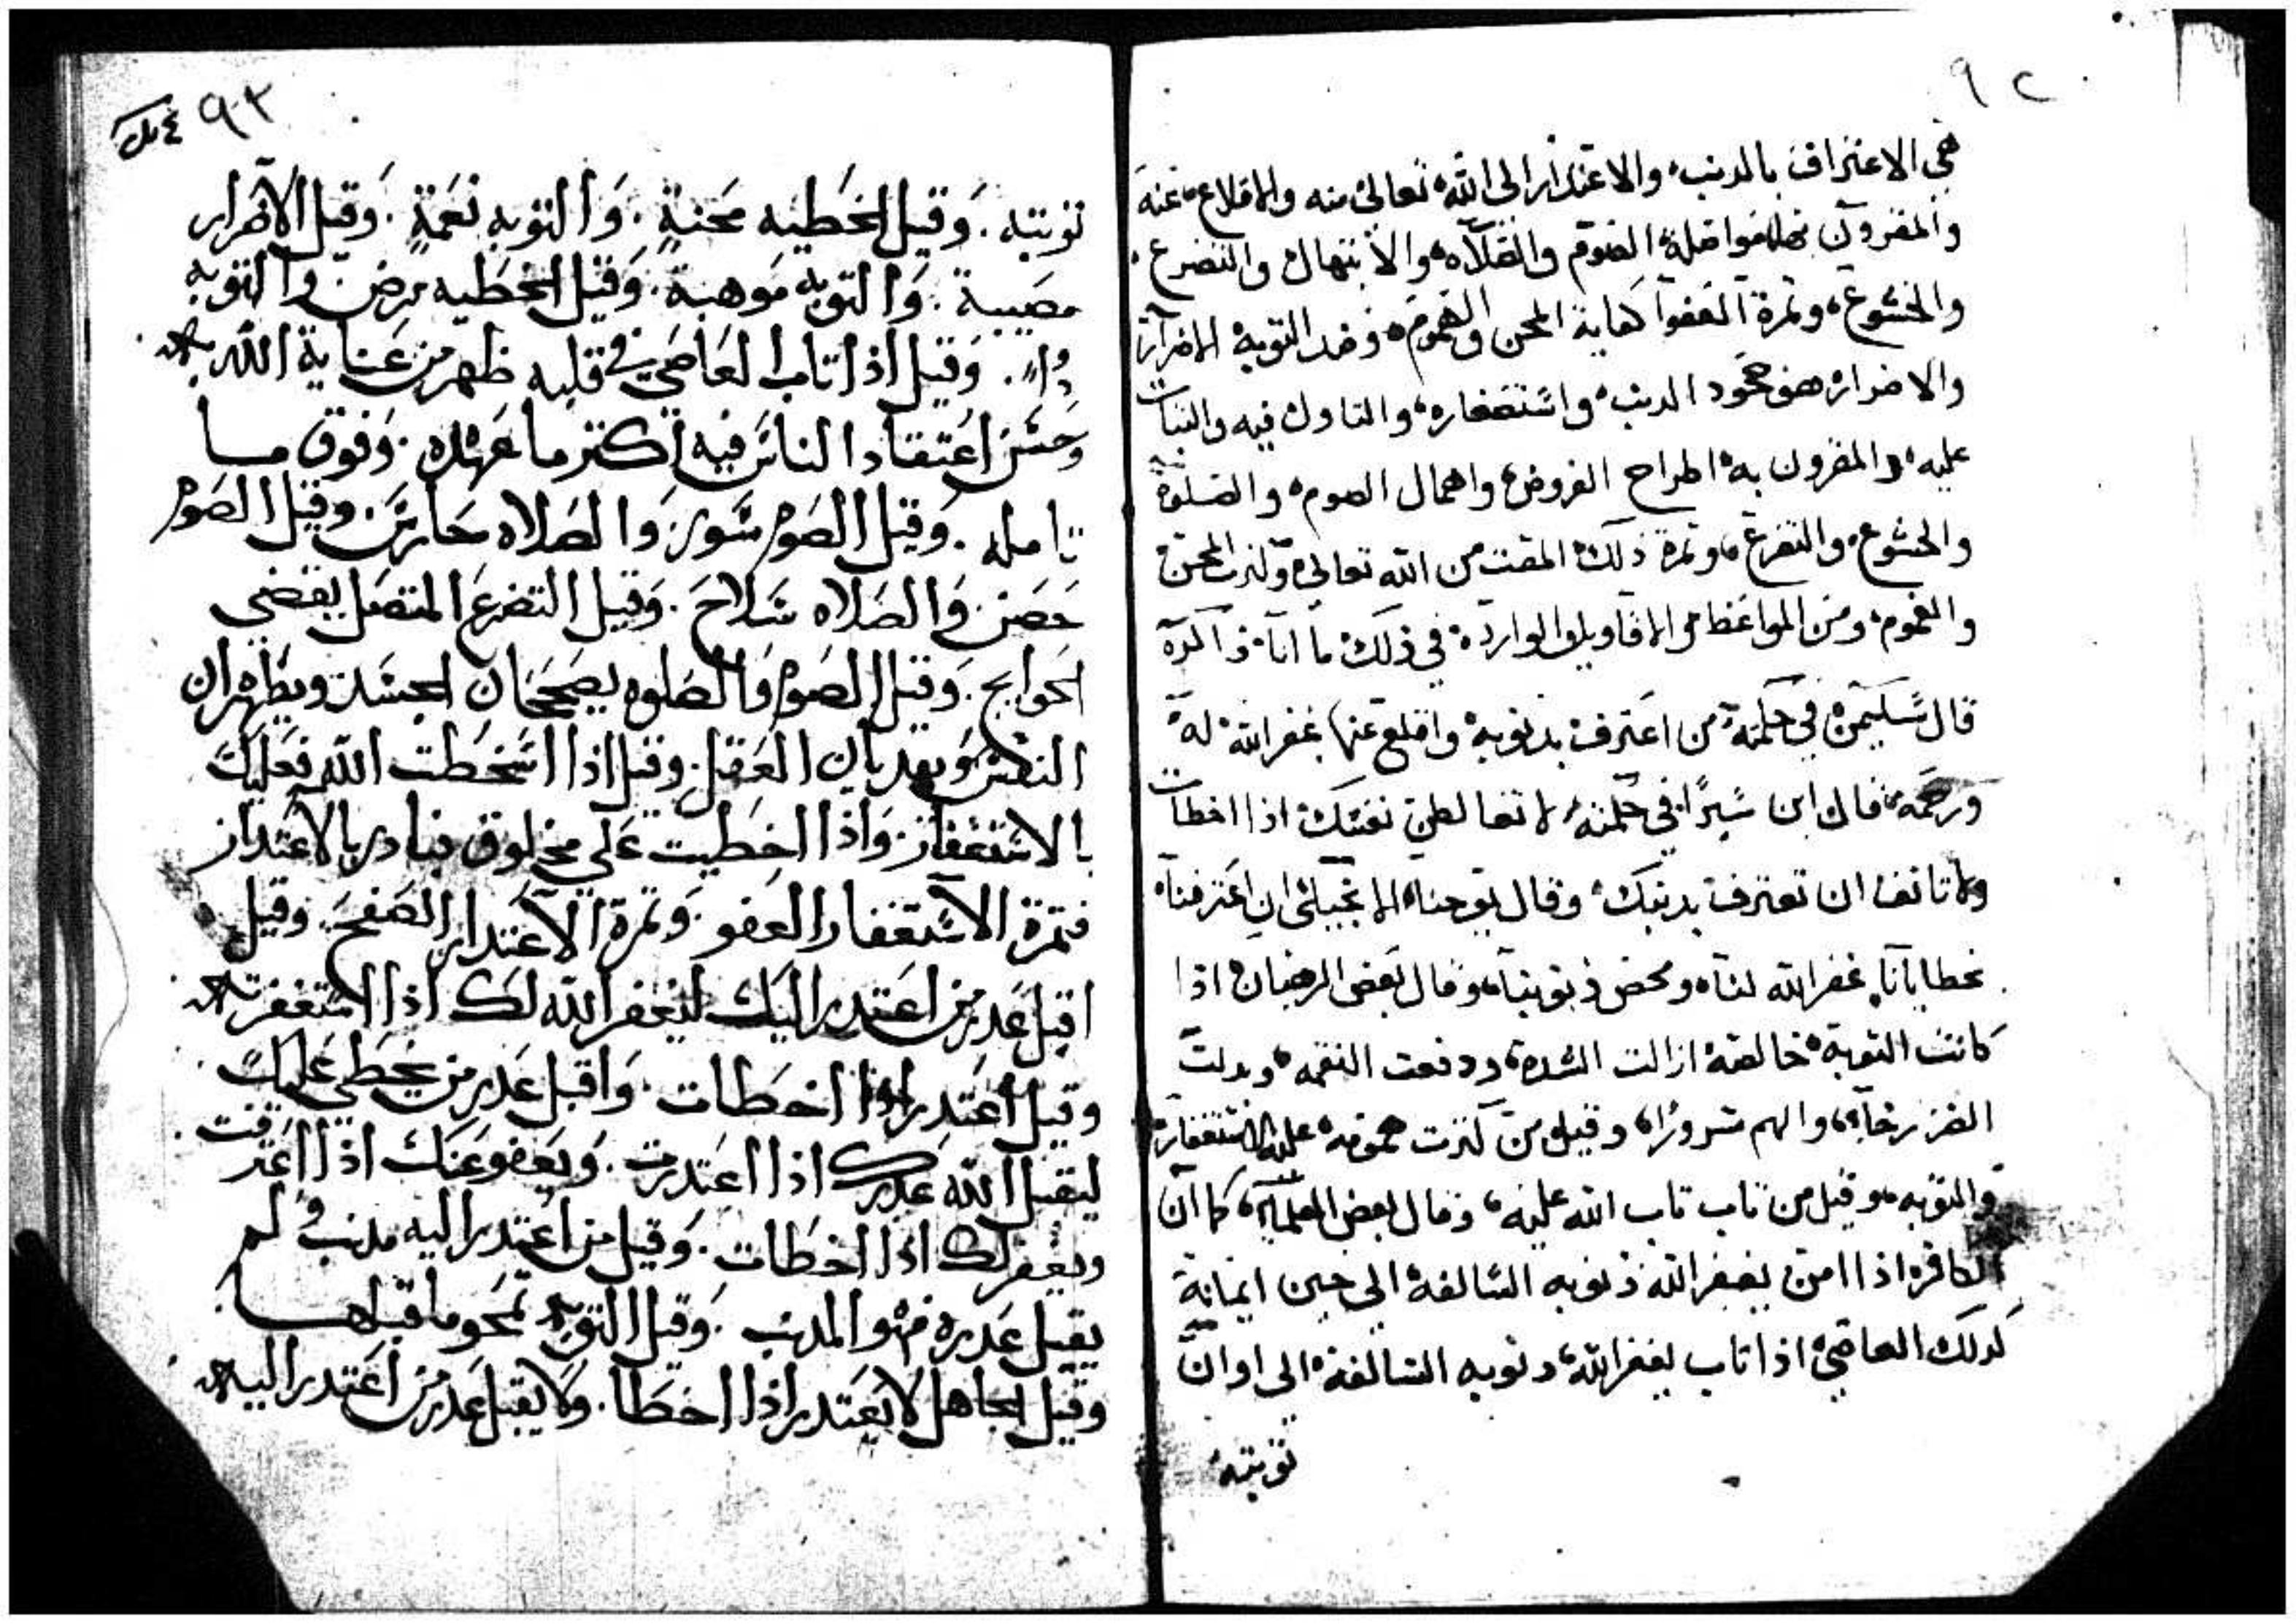 ٩٢
هي الاعتراف بالدنب، والاعتدار الى الله تعالى منه والاقلاع عنه
والمقرون بها مواصلة الصوم والصلاه والابتهال والتضرع
والخشوع، وثمرة العفو كفاية المحن والهموم، وضد التوبة الاصرار
والاصرار هو جحود الدنب، واستصغاره، والتاول فيه والثبات
عليه، والمقرون به اطراح الفروض، واهمال الصوم، والصلوة
والخشوع، والتضرع، وثمرة ذلك المقت من الله تعالى، وكثرت المحن
والغموم، ومن المواعظ والاقاويل الواردة، في ذلك ما انا ذاكره
قال سليمن في حكمته من اعترف بدنوبه، واقلع عنها يغفر الله له
ورحمه، قال ابن سيرا في حكمته، لا تغالطن نفسك اذا اخطات
ولا تانف ان تعترف بدنبك، وقال يوحنا الانجيلي ان اعترفنا
بخطايانا، غفر الله لنا، ومحص ذنوبنا، وقال بعض الرهبان اذا
كانت التوبة خالصة ازالت الشدة، ودفعت النقمه، وبدلت
الضر رخاء، والهم سرورا، وقيل من كثرت همومه عليه الاستغفار
والتوبه، وقيل من تاب تاب الله عليه، وقال بعض العلماء، كما ان
الكافر اذا امن يغفر الله ذنوبه السالفة الى حين ايمانه
كدلك العاصي اذا تاب يغفر الله، دنوبه السالفة الى اوان
توبته
٩٣
توبته . وقيل الخطيه محنة . والتوبه نعمة . وقيل الاصرار
مصيبة . والتوبه موهبة . وقيل الخطيه مرض والتوبه
دواء . وقيل اذا تاب العاصي في قلبه ظهر من عناية الله به
وحسن اعتقاد الناس فيه اكثر ما عهده . وفوق ما
تامله . وقيل الصوم سور والصلاه حارس . وقيل الصوم
حصن والصلاه سلاح . وقيل التضرع المتصل يقضي
الحوايج . وقيل الصوم والصلوه يصححان الجسد ويطهران
النفس ويهديان العقل . وقيل اذا اسخطت الله فعليك
بالاستغفار . واذا اخطيت علي مخلوق فبادر بالاعتدار
فثمرة الاستغفار العفو . وثمرة الاعتدار الصفح . وقيل
اقبل عدر من اعتدر اليك ليغفر الله لك اذا استغفرته
وقيل اعتدر اذا اخطات . واقبل عدر من يخطي عليك
ليقبل الله عدرك اذا اعتدرت . ويعفو عنك اذا اعترفت
ويغفر لك اذا اخطات . وقيل من اعتدر اليه مدنب ولم
يقبل عدره فهو المدنب . وقيل التوبه تمحو ما قبلها
وقيل الجاهل لا يعتدر اذا اخطا . ولا يقبل عدر من اعتدر اليه